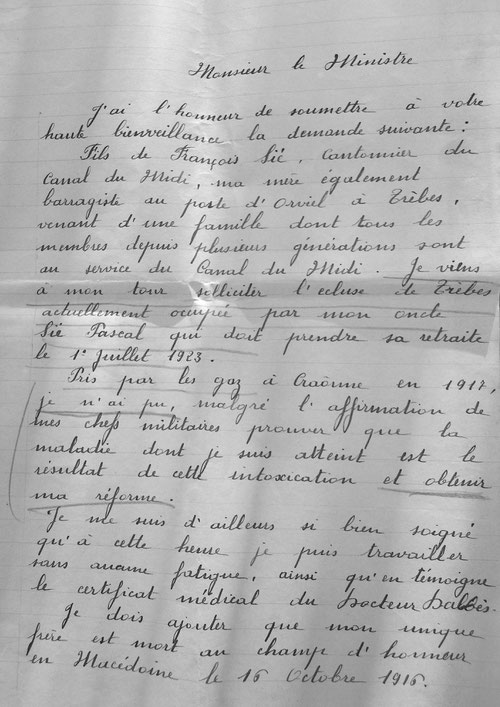 Monsieur le Ministre
J'ai l'honneur de soumettre à votre
haute bienveillance la demande suivante :
Fils de François Sié, Cantonnier du
Canal du Midi, ma mère également
barragiste au poste d'Orviel à Trèbes,
venant d'une famille dont tous les
membres depuis plusieurs générations sont
au service du Canal du Midi. Je viens
à mon tour solliciter l'écluse de Trèbes
actuellement occupée par mon oncle
Sié Pascal qui doit prendre sa retraite
le 1er Juillet 1923.
Pris par les gaz à Craônne en 1917,
je n'ai pu, malgré l'affirmation de
mes chefs militaires prouver que la
maladie dont je suis atteint est le
résultat de cette intoxication et obtenir
ma réforme.
Je me suis d'ailleurs si bien soigné
qu'à cette heure je puis travailler
sans aucune fatigue, ainsi qu'en témoigne
le certificat médical du Docteur
Je dois ajouter que mon unique
frère est mort au champ d'honneur
en Macédoine le 16 Octobre 1916.